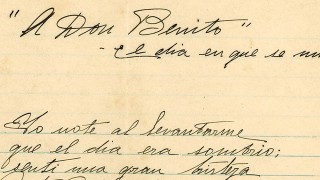 "A Don Benito"
- El dia en que se mu
Yo noté al levantarme
que el dia era sombrio;
senti una gran tristeza